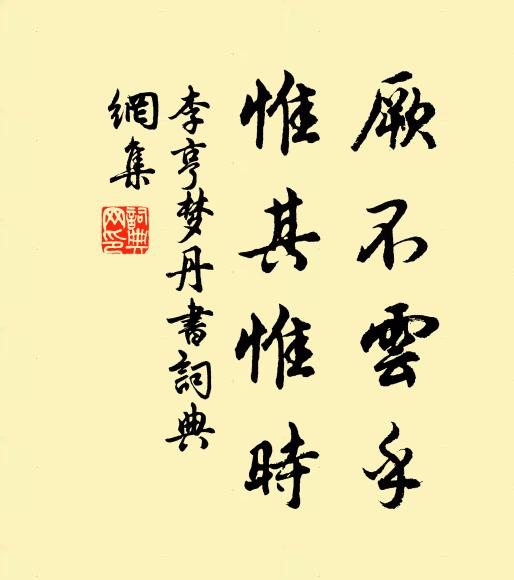 厥不雲乎
惟其惟時
李亨梦丹書詞典
網集
詞典
网印